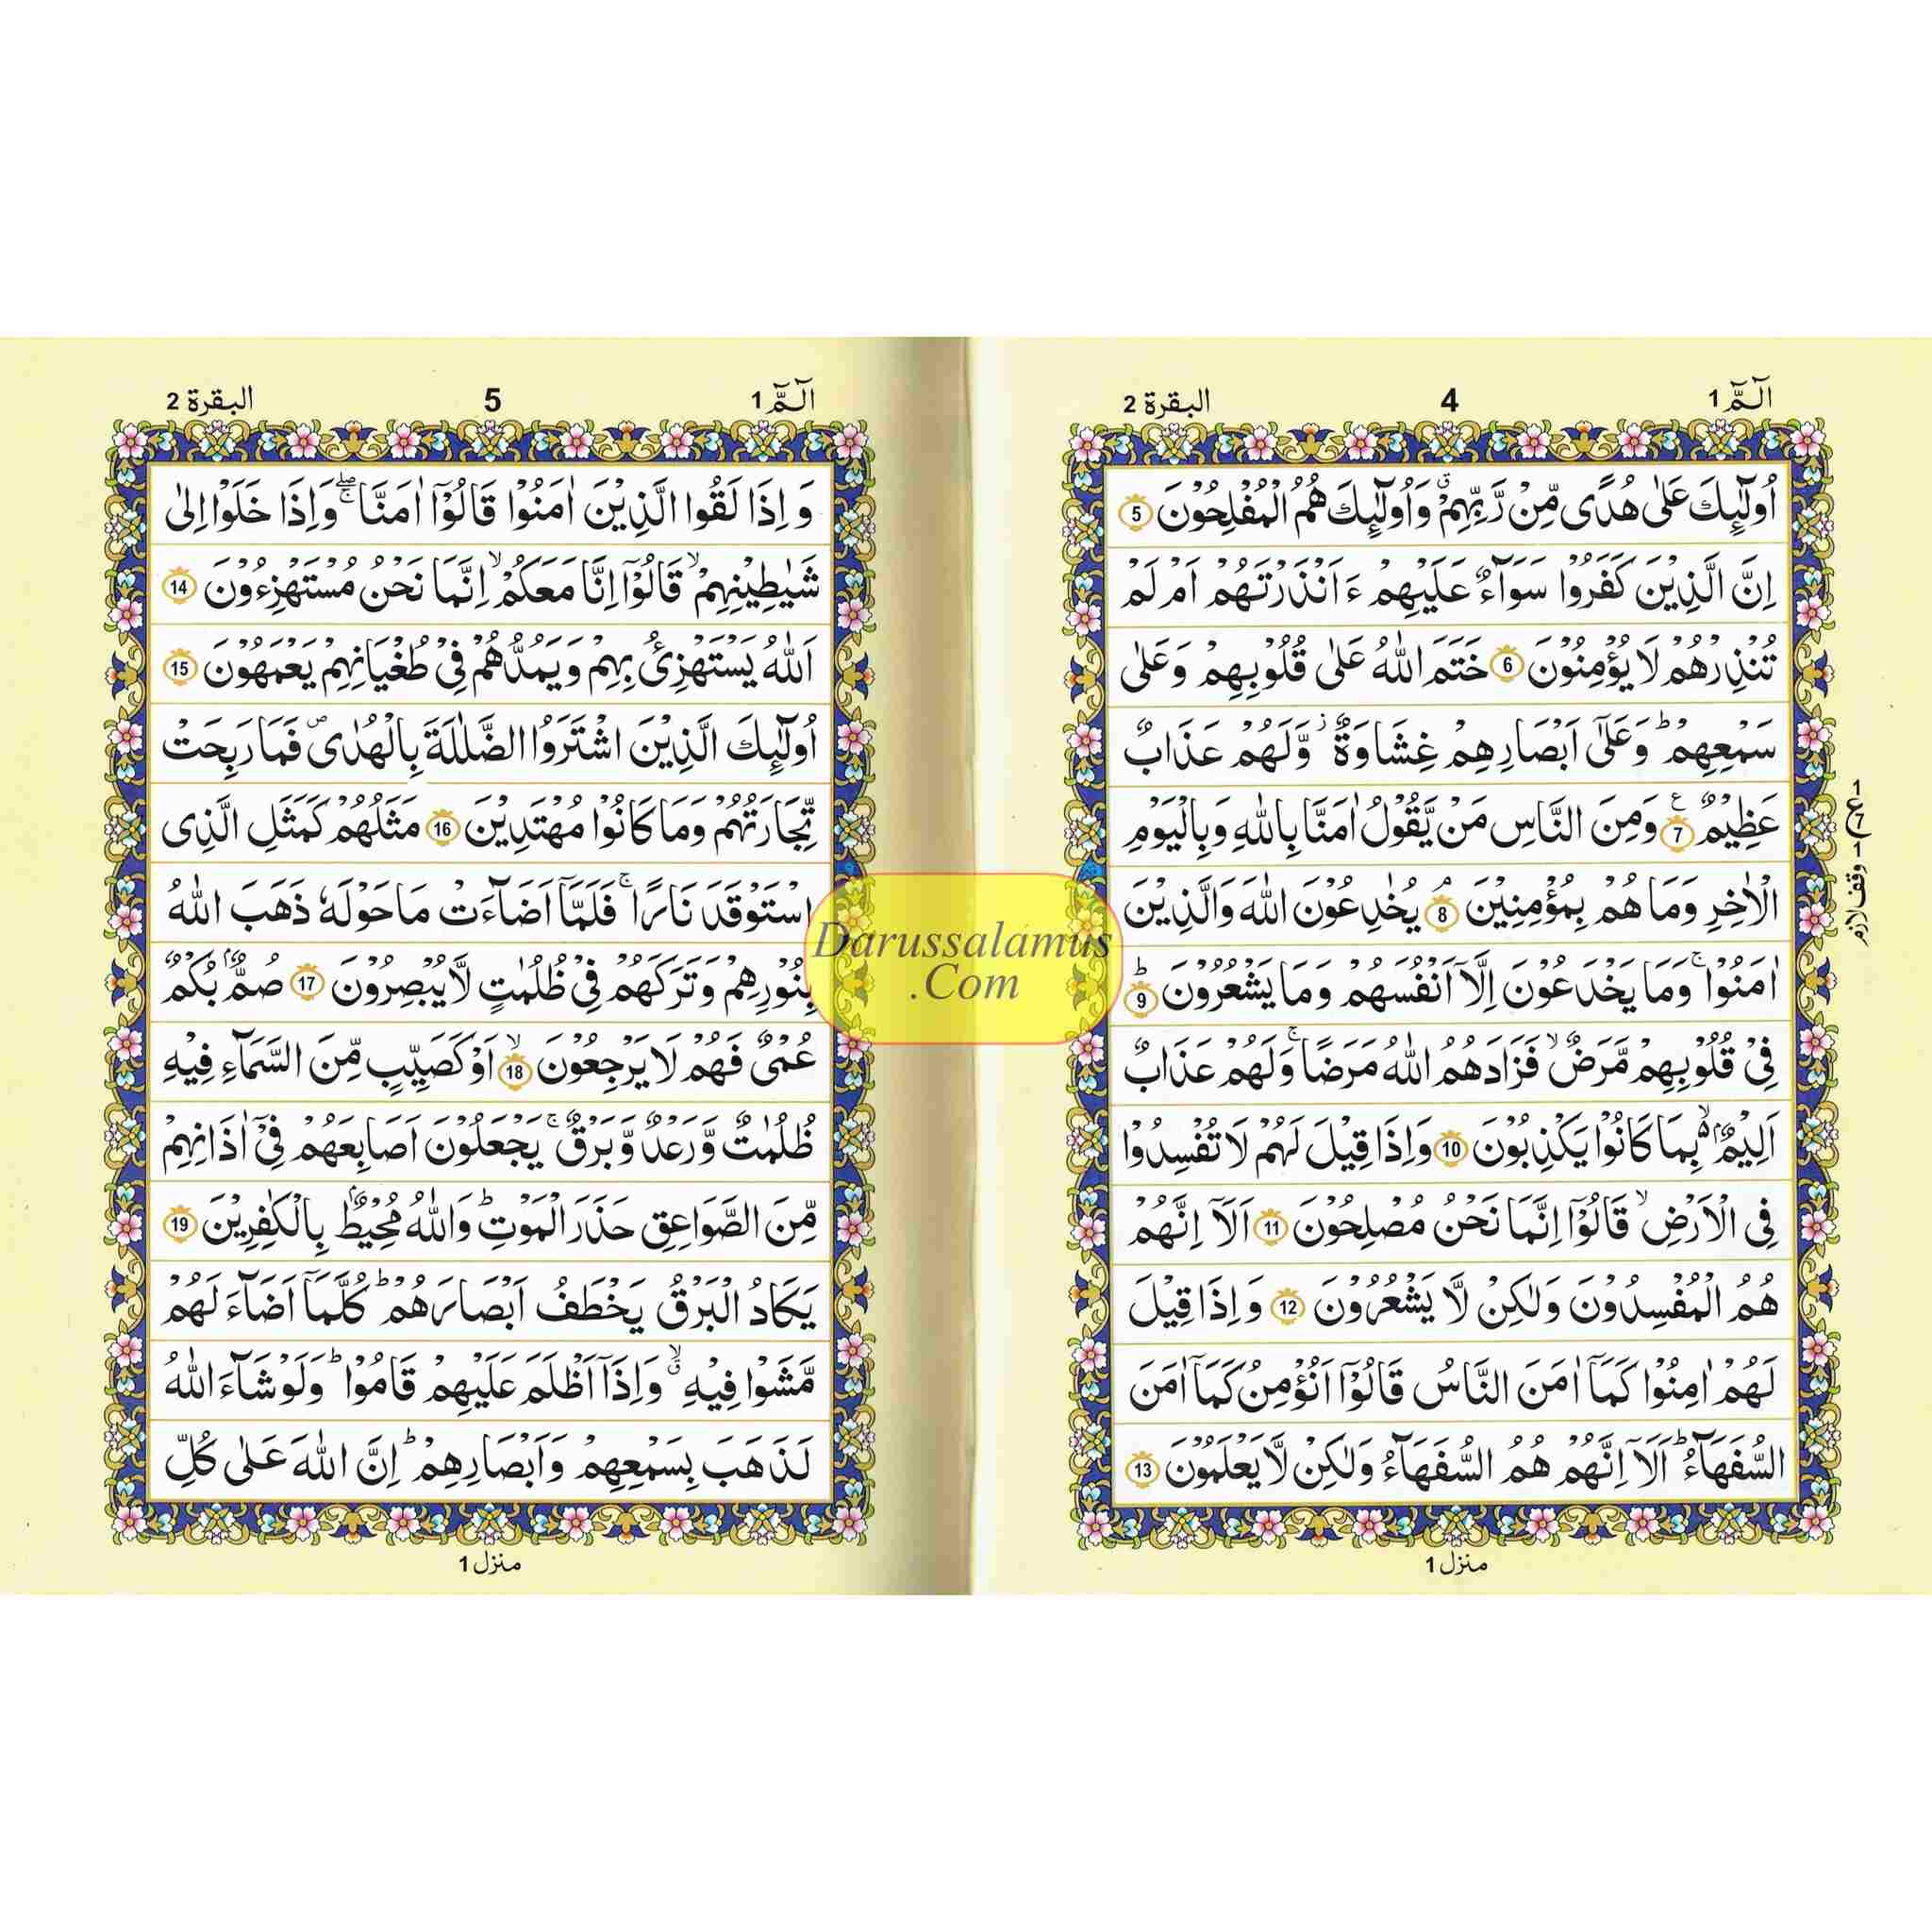 الٓمّٓ 1
4
البقرة 2
اُولٰٓئِكَ عَلٰى هُدًى مِّنْ رَّبِّهِمْ ۙ وَاُولٰٓئِكَ هُمُ الْمُفْلِحُوْنَ 5
اِنَّ الَّذِيْنَ كَفَرُوْا سَوَآءٌ عَلَيْهِمْ ءَاَنْذَرْتَهُمْ اَمْ لَمْ
تُنْذِرْهُمْ لَا يُؤْمِنُوْنَ 6 خَتَمَ اللّٰهُ عَلٰى قُلُوْبِهِمْ وَعَلٰى
سَمْعِهِمْ ؕ وَعَلٰٓى اَبْصَارِهِمْ غِشَاوَةٌ ۫ وَّلَهُمْ عَذَابٌ
عَظِيْمٌ 7 ع وَمِنَ النَّاسِ مَنْ يَّقُوْلُ اٰمَنَّا بِاللّٰهِ وَبِالْيَوْمِ
الْاٰخِرِ وَمَا هُمْ بِمُؤْمِنِيْنَ ۘ 8 يُخٰدِعُوْنَ اللّٰهَ وَالَّذِيْنَ
اٰمَنُوْا ۚ وَمَا يَخْدَعُوْنَ اِلَّاۤ اَنْفُسَهُمْ وَمَا يَشْعُرُوْنَ ؕ 9
فِيْ قُلُوْبِهِمْ مَّرَضٌ ۙ فَزَادَهُمُ اللّٰهُ مَرَضًا ۚ وَلَهُمْ عَذَابٌ
اَلِيْمٌۢ ۙ۬ بِمَا كَانُوْا يَكْذِبُوْنَ 10 وَاِذَا قِيْلَ لَهُمْ لَا تُفْسِدُوْا
فِى الْاَرْضِ ۙ قَالُوْۤا اِنَّمَا نَحْنُ مُصْلِحُوْنَ 11 اَلَاۤ اِنَّهُمْ
هُمُ الْمُفْسِدُوْنَ وَلٰكِنْ لَّا يَشْعُرُوْنَ 12 وَاِذَا قِيْلَ
لَهُمْ اٰمِنُوْا كَمَاۤ اٰمَنَ النَّاسُ قَالُوْۤا اَنُؤْمِنُ كَمَاۤ اٰمَنَ
السُّفَهَآءُ ؕ اَلَاۤ اِنَّهُمْ هُمُ السُّفَهَآءُ وَلٰكِنْ لَّا يَعْلَمُوْنَ 13
منزل 1
ع 7 وقف لازم
الٓمّٓ 1
5
البقرة 2
وَاِذَا لَقُوا الَّذِيْنَ اٰمَنُوْا قَالُوْۤا اٰمَنَّا ۖۚ وَاِذَا خَلَوْا اِلٰى
شَيٰطِيْنِهِمْ ۙ قَالُوْۤا اِنَّا مَعَكُمْ ۙ اِنَّمَا نَحْنُ مُسْتَهْزِءُوْنَ 14
اَللّٰهُ يَسْتَهْزِئُ بِهِمْ وَيَمُدُّهُمْ فِيْ طُغْيَانِهِمْ يَعْمَهُوْنَ 15
اُولٰٓئِكَ الَّذِيْنَ اشْتَرَوُا الضَّلٰلَةَ بِالْهُدٰى ۪ فَمَا رَبِحَتْ
تِّجَارَتُهُمْ وَمَا كَانُوْا مُهْتَدِيْنَ 16 مَثَلُهُمْ كَمَثَلِ الَّذِى
اسْتَوْقَدَ نَارًا ۚ فَلَمَّاۤ اَضَآءَتْ مَا حَوْلَهٗ ذَهَبَ اللّٰهُ
بِنُوْرِهِمْ وَتَرَكَهُمْ فِيْ ظُلُمٰتٍ لَّا يُبْصِرُوْنَ 17 صُمٌّۢ بُكْمٌ
عُمْىٌ فَهُمْ لَا يَرْجِعُوْنَ ۙ 18 اَوْ كَصَيِّبٍ مِّنَ السَّمَآءِ فِيْهِ
ظُلُمٰتٌ وَّرَعْدٌ وَّبَرْقٌ ۚ يَجْعَلُوْنَ اَصَابِعَهُمْ فِيْۤ اٰذَانِهِمْ
مِّنَ الصَّوَاعِقِ حَذَرَ الْمَوْتِ ؕ وَاللّٰهُ مُحِيْطٌۢ بِالْكٰفِرِيْنَ 19
يَكَادُ الْبَرْقُ يَخْطَفُ اَبْصَارَهُمْ ؕ كُلَّمَاۤ اَضَآءَ لَهُمْ
مَّشَوْا فِيْهِ ۙۗ وَاِذَاۤ اَظْلَمَ عَلَيْهِمْ قَامُوْا ؕ وَلَوْ شَآءَ اللّٰهُ
لَذَهَبَ بِسَمْعِهِمْ وَاَبْصَارِهِمْ ؕ اِنَّ اللّٰهَ عَلٰى كُلِّ
منزل 1
Darussalamus
.Com